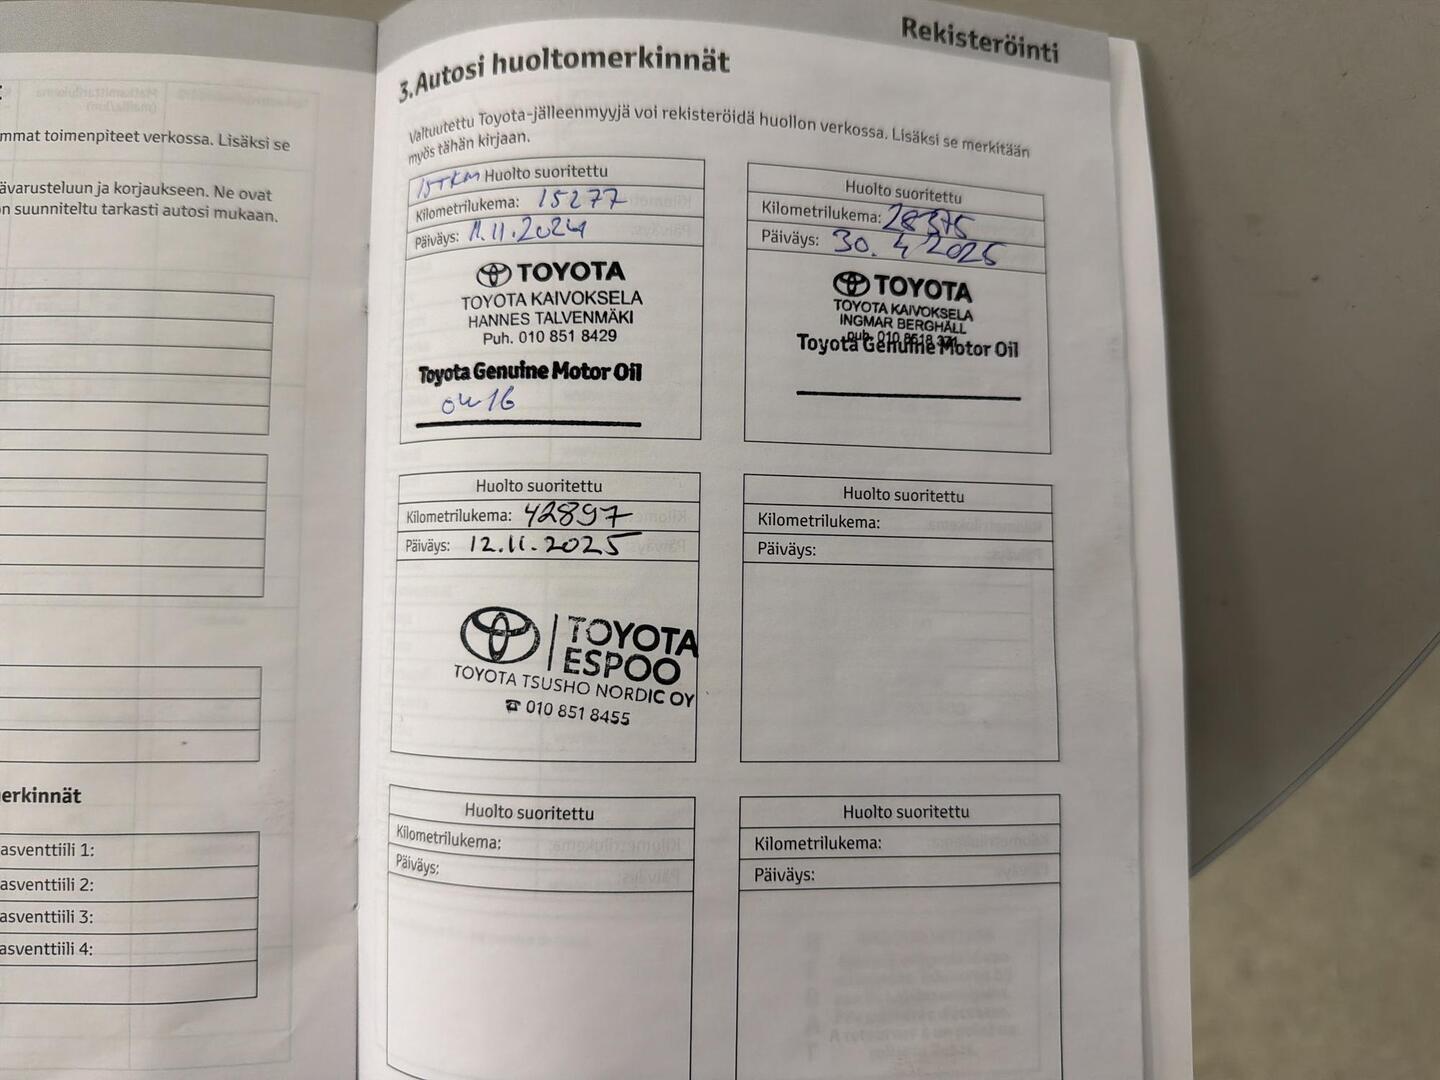 Rekisteröinti
3. Autosi huoltomerkinnät
Valtuutettu Toyota-jälleenmyyjä voi rekisteröidä huollon verkossa. Lisäksi se merkitään
myös tähän kirjaan.
15TKM Huolto suoritettu
Kilometrilukema: 15277
Päiväys: 11.11.2024
TOYOTA
TOYOTA KAIVOKSELA
HANNES TALVENMÄKI
Puh. 010 851 8429
Toyota Genuine Motor Oil
0W16
Huolto suoritettu
Kilometrilukema: 28375
Päiväys: 30.4.2025
TOYOTA
TOYOTA KAIVOKSELA
INGMAR BERGHÄLL
puh. 010 8518
Toyota Genuine Motor Oil
Huolto suoritettu
Kilometrilukema: 42897
Päiväys: 12.11.2025
TOYOTA
ESPOO
TOYOTA TSUSHO NORDIC OY
☎ 010 851 8455
Huolto suoritettu
Kilometrilukema:
Päiväys:
Huolto suoritettu
Kilometrilukema:
Päiväys:
Huolto suoritettu
Kilometrilukema:
Päiväys:
mmat toimenpiteet verkossa. Lisäksi se
ävarusteluun ja korjaukseen. Ne ovat
n suunniteltu tarkasti autosi mukaan.
erkinnät
asventtiili 1:
asventtiili 2:
asventtiili 3:
asventtiili 4: